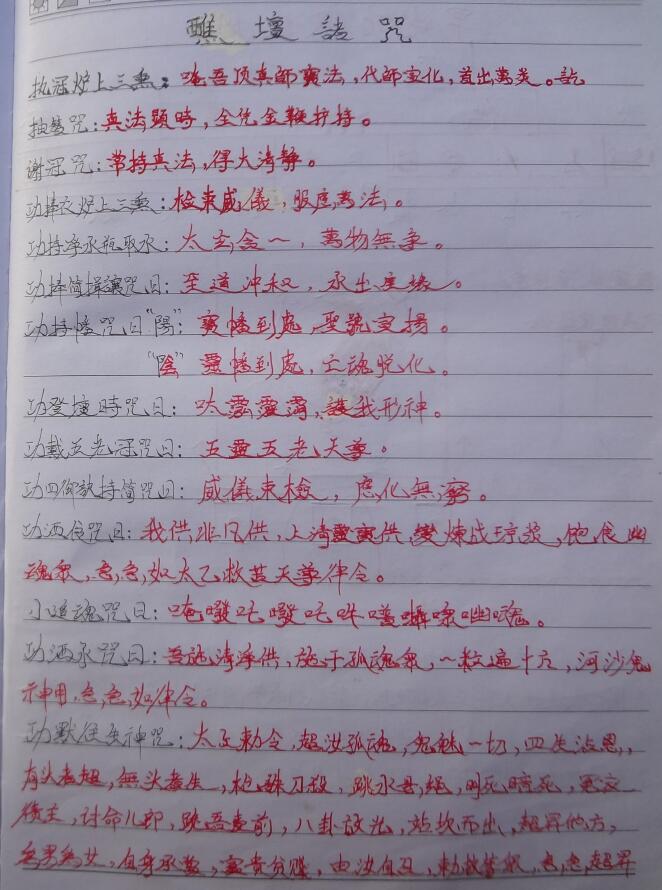 醮壇諸咒
执冠炉上三熏：唵吾顶真師寳法，代師宣化，首出萬类。訖
抽簪咒：真法顕時，全凭金鞭护持。
谢冠咒：常持真法，得大清静。
功捧衣炉上三熏：检束威儀，服度萬法。
功持净水瓶取水：太玄含一，萬物無爭。
功捧简揖讓咒曰：至道冲和，承出
功持旛咒曰"陽"：寳旛到處，聖號宣揚。
"陰"靈旛到處，亡魂脱化。
功登壇時咒曰：靈靈，護我形神。
功戴五老冠咒曰：五靈五老天尊。
功四御献持简咒曰：威儀束檢，庶化無窮。
功洒食咒曰：我供非凡供，上清靈寳供，變煉成琼浆，饱食幽
魂衆，急急如太乙救苦天尊律令。
小追魂咒曰：唵
功洒水咒曰：吾施清净供，施于孤魂衆，一粒遍十方，河沙鬼
神用，急急如律令。
功默往生神咒：太上勅令，超汝孤魂，鬼魅一切，四生沾恩，
有头者超，無头者生，枪誅刀殺，跳水悬绳，明死暗死，冤家
債主，讨命儿郎，跪吾臺前，八卦放光，站坎而出，超昇他方，
為男為女，自身承當，富貴贫賤，由汝自召，勅救等衆，急急超昇